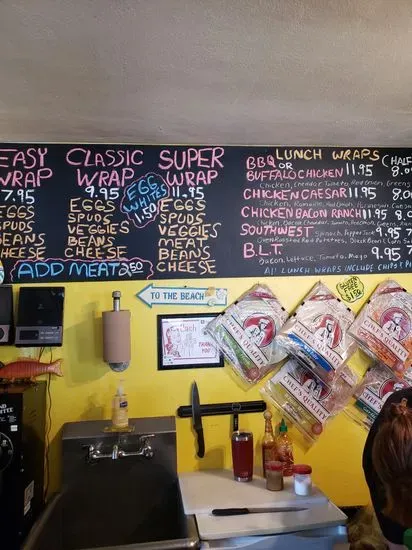 EASY
WRAP
7.95
EGGS
SPUDS
VEGGIES
BEANS
CHEESE
CLASSIC
WRAP
9.95
EGGS
SPUDS
VEGGIES
BEANS
CHEESE
EGG
WHITES
1.50
SUPER
WRAP
11.95
EGGS
SPUDS
VEGGIES
MEAT
BEANS
CHEESE
ADD MEAT 2.50
LUNCH WRAPS (HALF
BBQ OR
BUFFALO CHICKEN 11.95
Chicken, Cheddar, Tomato, Red Onion, Greens
CHICKEN CAESAR 11.50
Chicken, Romaine, Red Onion, Parmesan, Caesar
CHICKEN BACON RANCH 11.95
SOUTHWEST Spinach, Pepper Jack
Oven Roasted Red Potatoes, Black Bean
B.L.T. Bacon, Lettuce, Tomato, Mayo
All LUNCH WRAPS INCLUDE CHIPS
TO THE BEACH
GLUTEN
FREE
CHEF'S
QUALITY
CHEF'S
QUALITY
CHEF'S
QUALITY